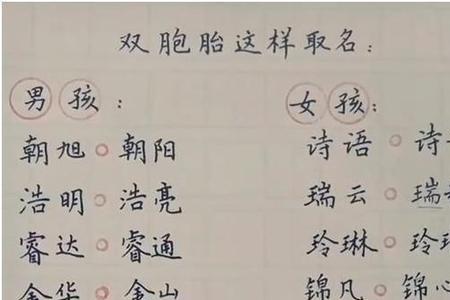 双胞胎这样取名：
男孩： 女孩：
朝旭○朝阳 诗语○诗
浩明○浩亮 瑞云○瑞
睿达○睿通 玲琳○玲
金华○金山 锦凡○锦心